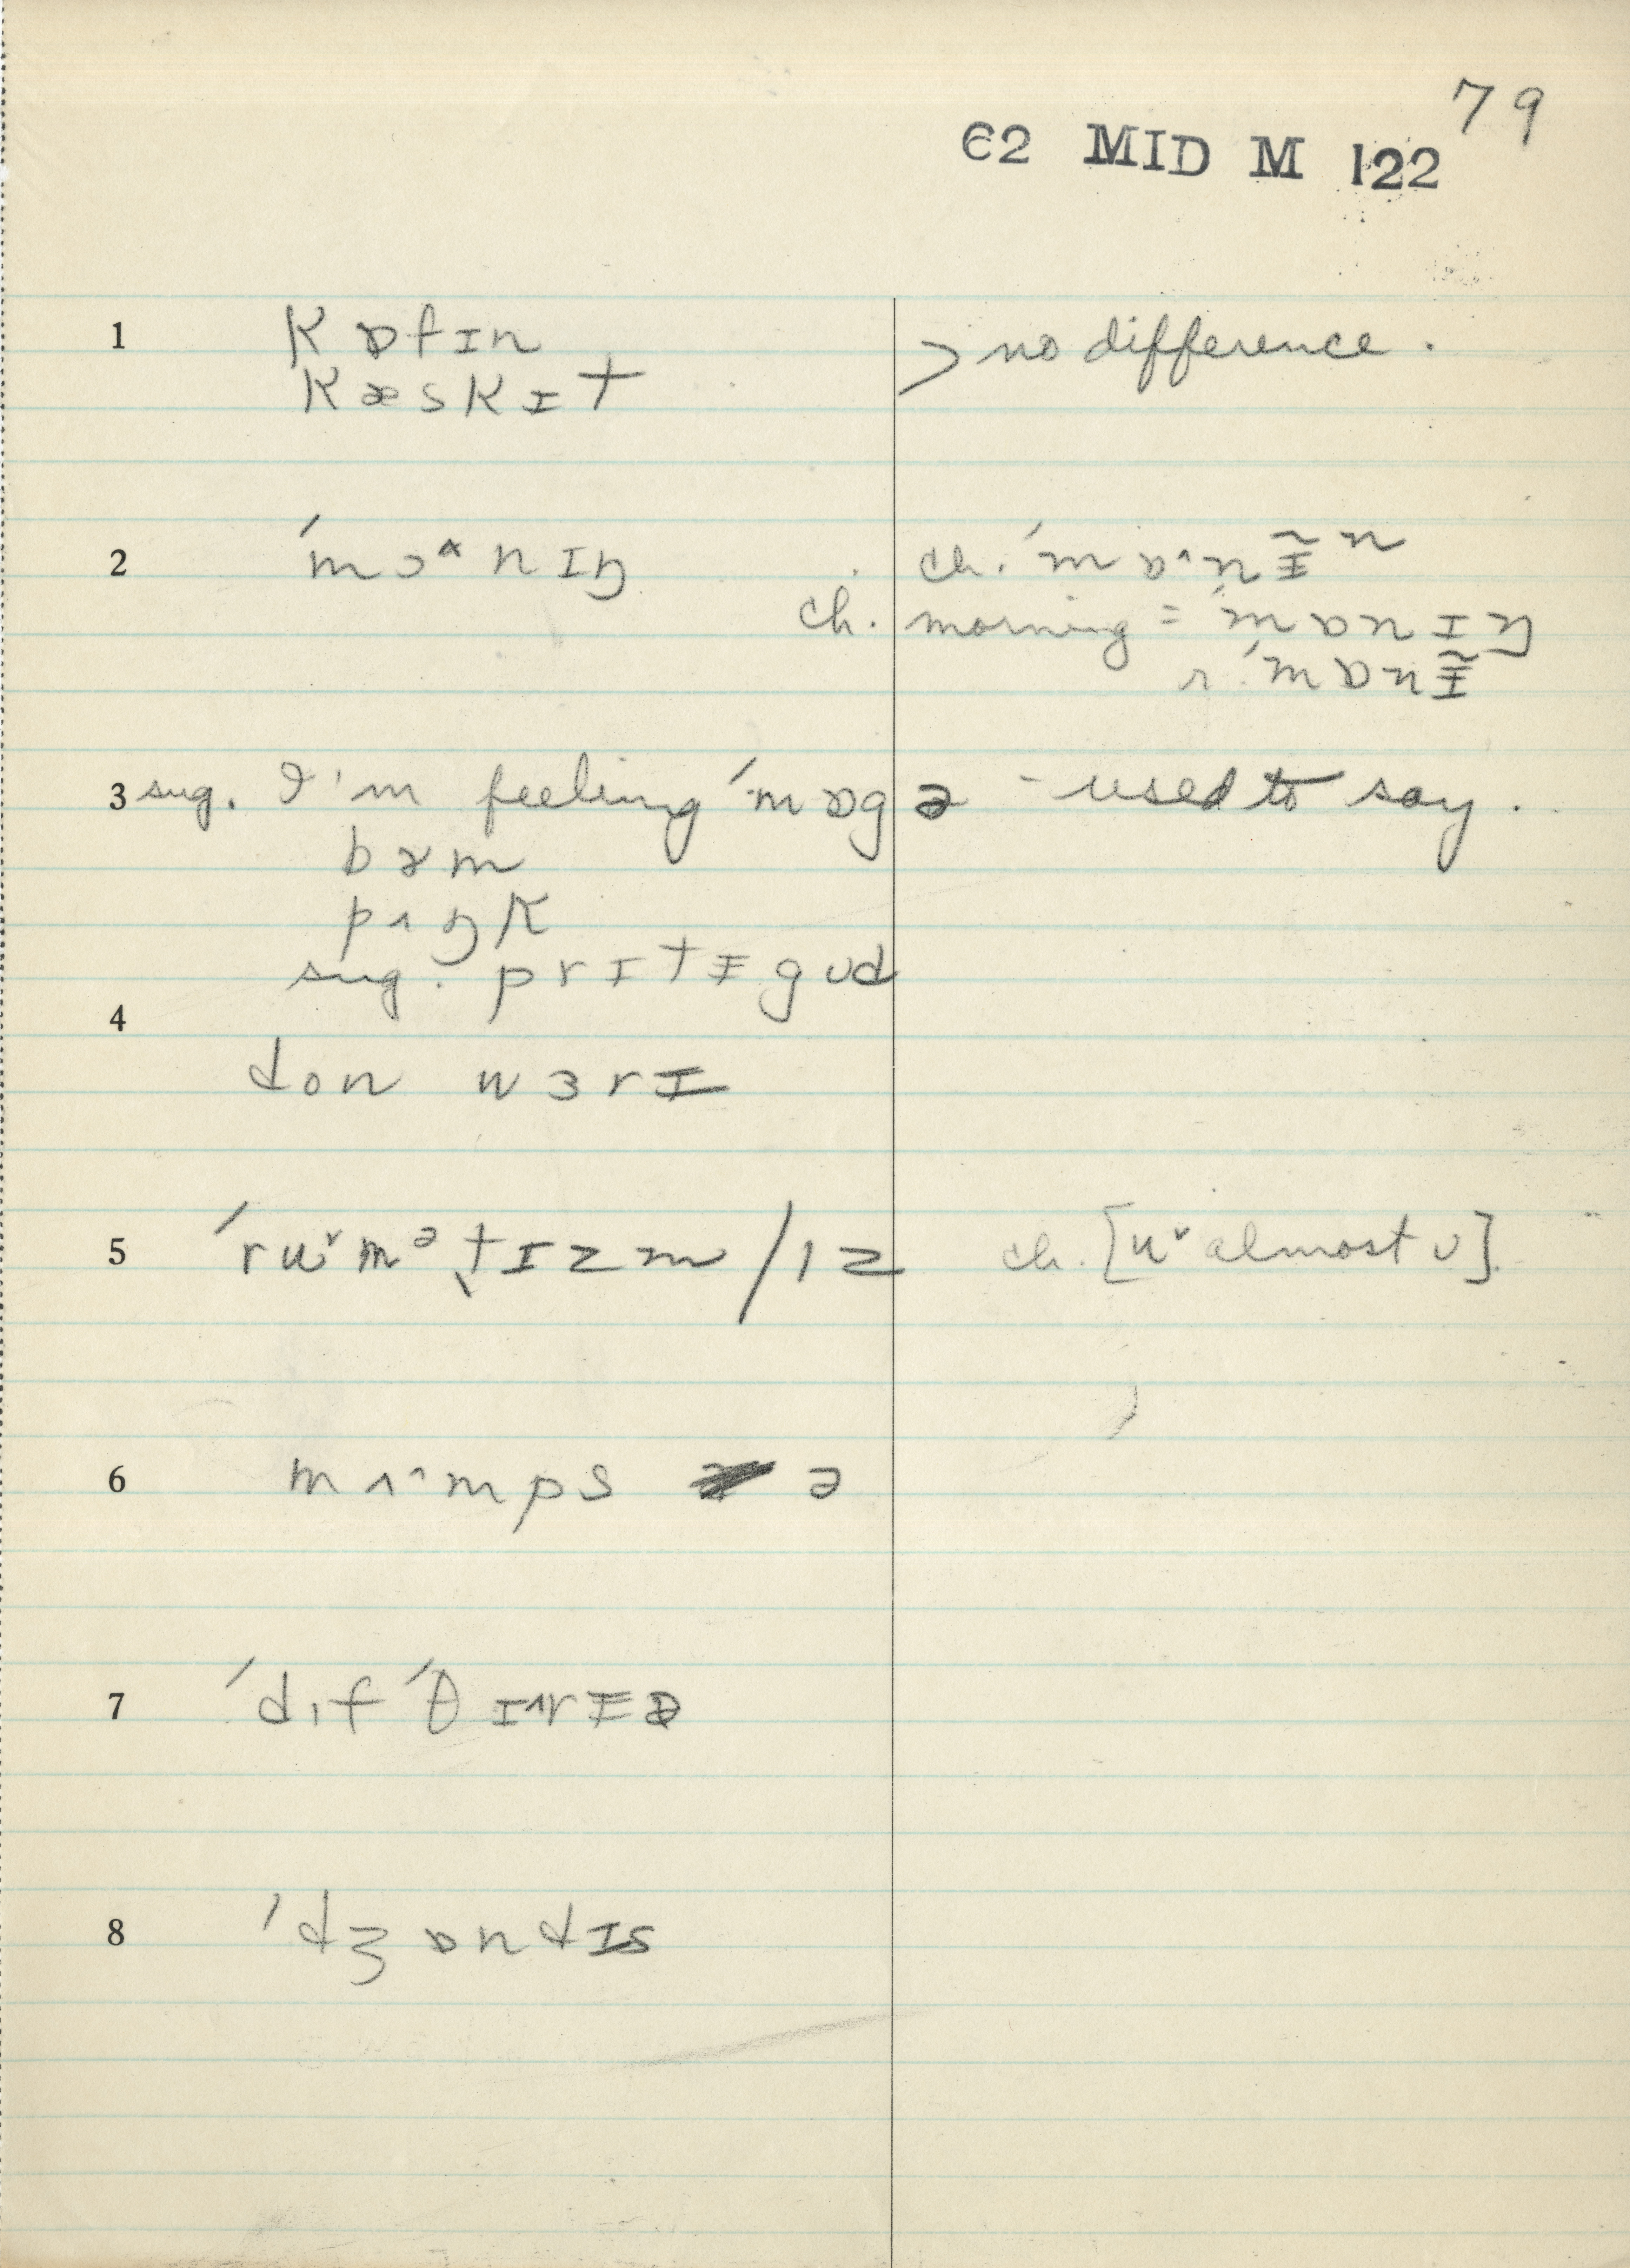 79
C2 MID M 122
1 kɒfɪn > no difference.
kæskɪt
2 ˈmɔ^nɪŋ ch. ˈmɒ^nɪ̵̃ⁿ
ch. morning = ˈmɒnɪŋ
r. ˈmɒnɪ̵̃
3 sug. I'm feeling ˈmɒgə - used to say.
bɤm
pʌŋk
sug. prɪtɪ̵ gʊd
4
don wɜrɪ̵
5 ˈruˇmᵊt̢ɪzm / ɪz ch. [uˇ almost ʊ].
6 mʌ^mps ə
7 ˈdɪfˈθɪ^rɪ̵ə
8 ˈdʒɒndɪs